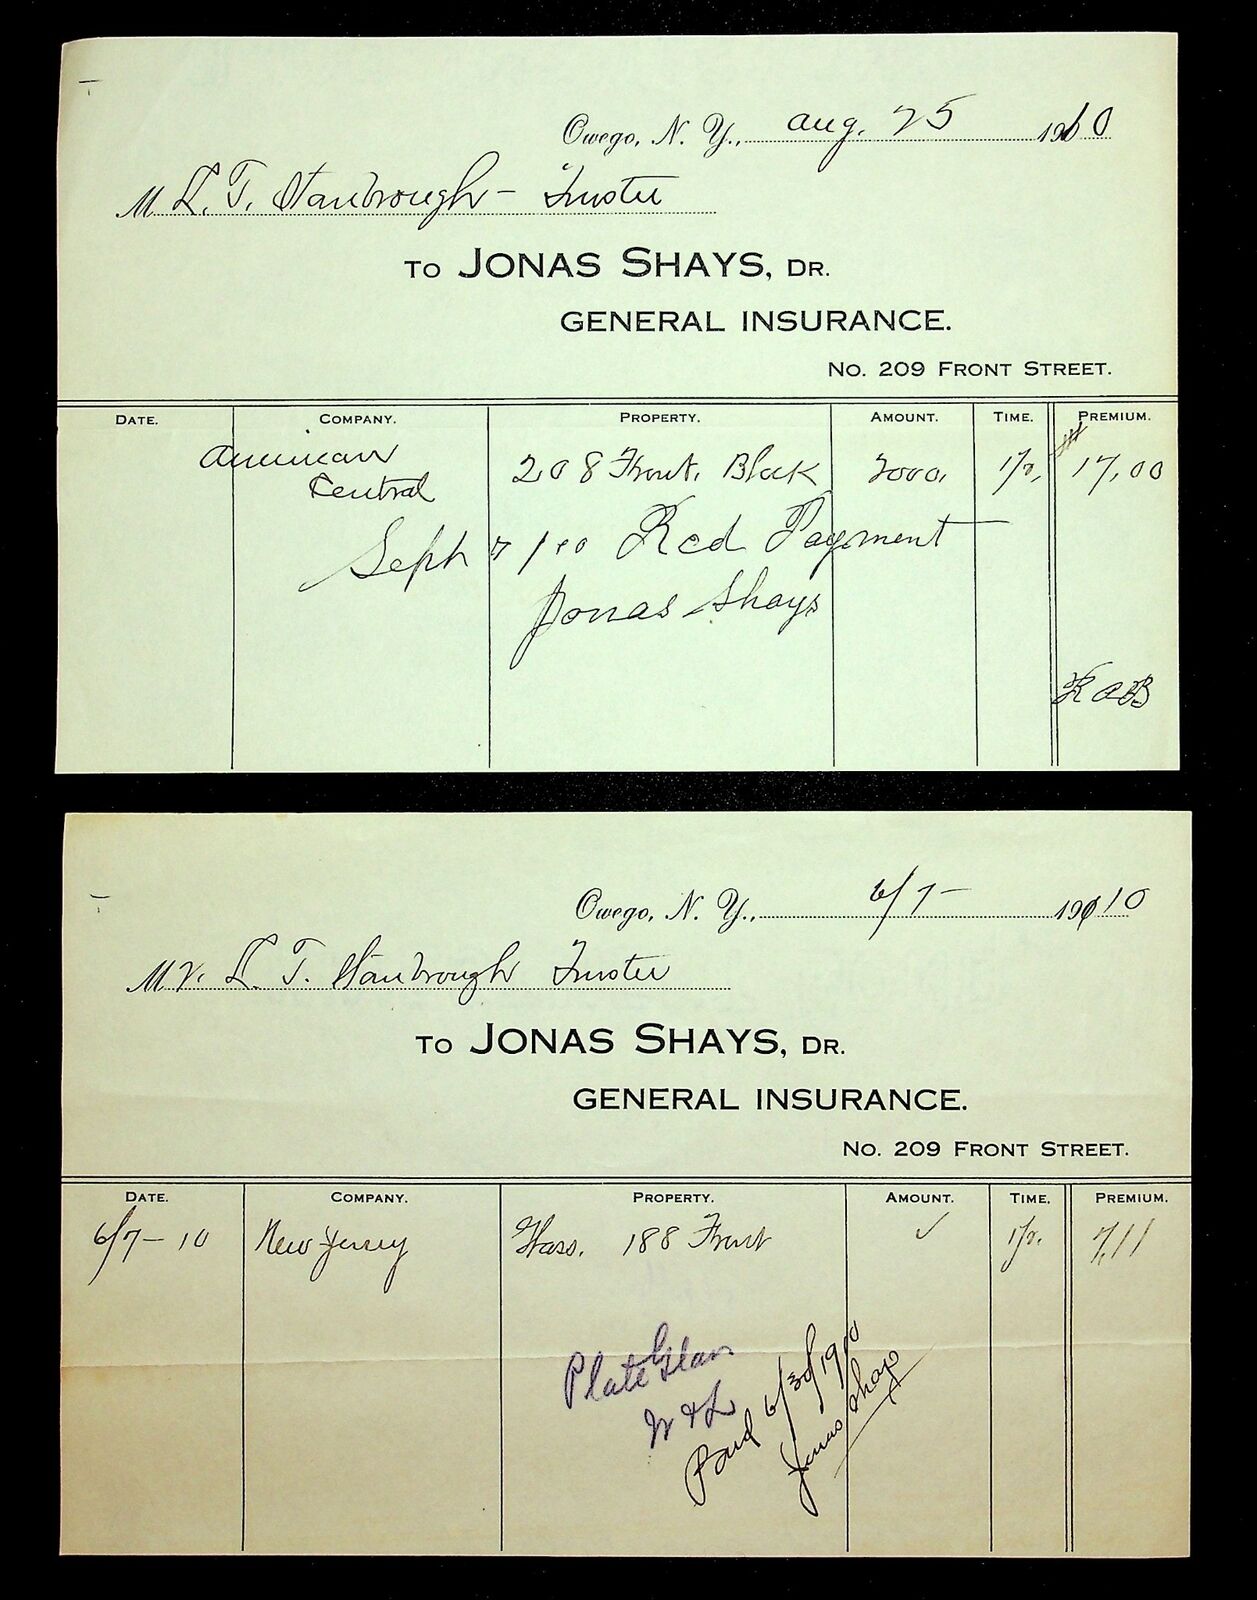 Owego, N. Y., Aug. 25 1910
M L. T. Stanbrough - Trustee
TO JONAS SHAYS, DR.
GENERAL INSURANCE.
No. 209 FRONT STREET.
DATE. COMPANY. PROPERTY. AMOUNT. TIME. PREMIUM.
American Central 208 Front. Block 2000. 1/r. 17.00
Sept 7/10 Rcd Payment
Jonas Shays
Owego, N. Y., 6/7- 1910
Mr. L. T. Stanbrough Trustee
TO JONAS SHAYS, DR.
GENERAL INSURANCE.
No. 209 FRONT STREET.
DATE. COMPANY. PROPERTY. AMOUNT. TIME. PREMIUM.
6/7-10 New Jersey Glass. 188 Front ✓ 1/r. 7.11
Plate Glass
Paid 6/30/1910
Jonas Shays